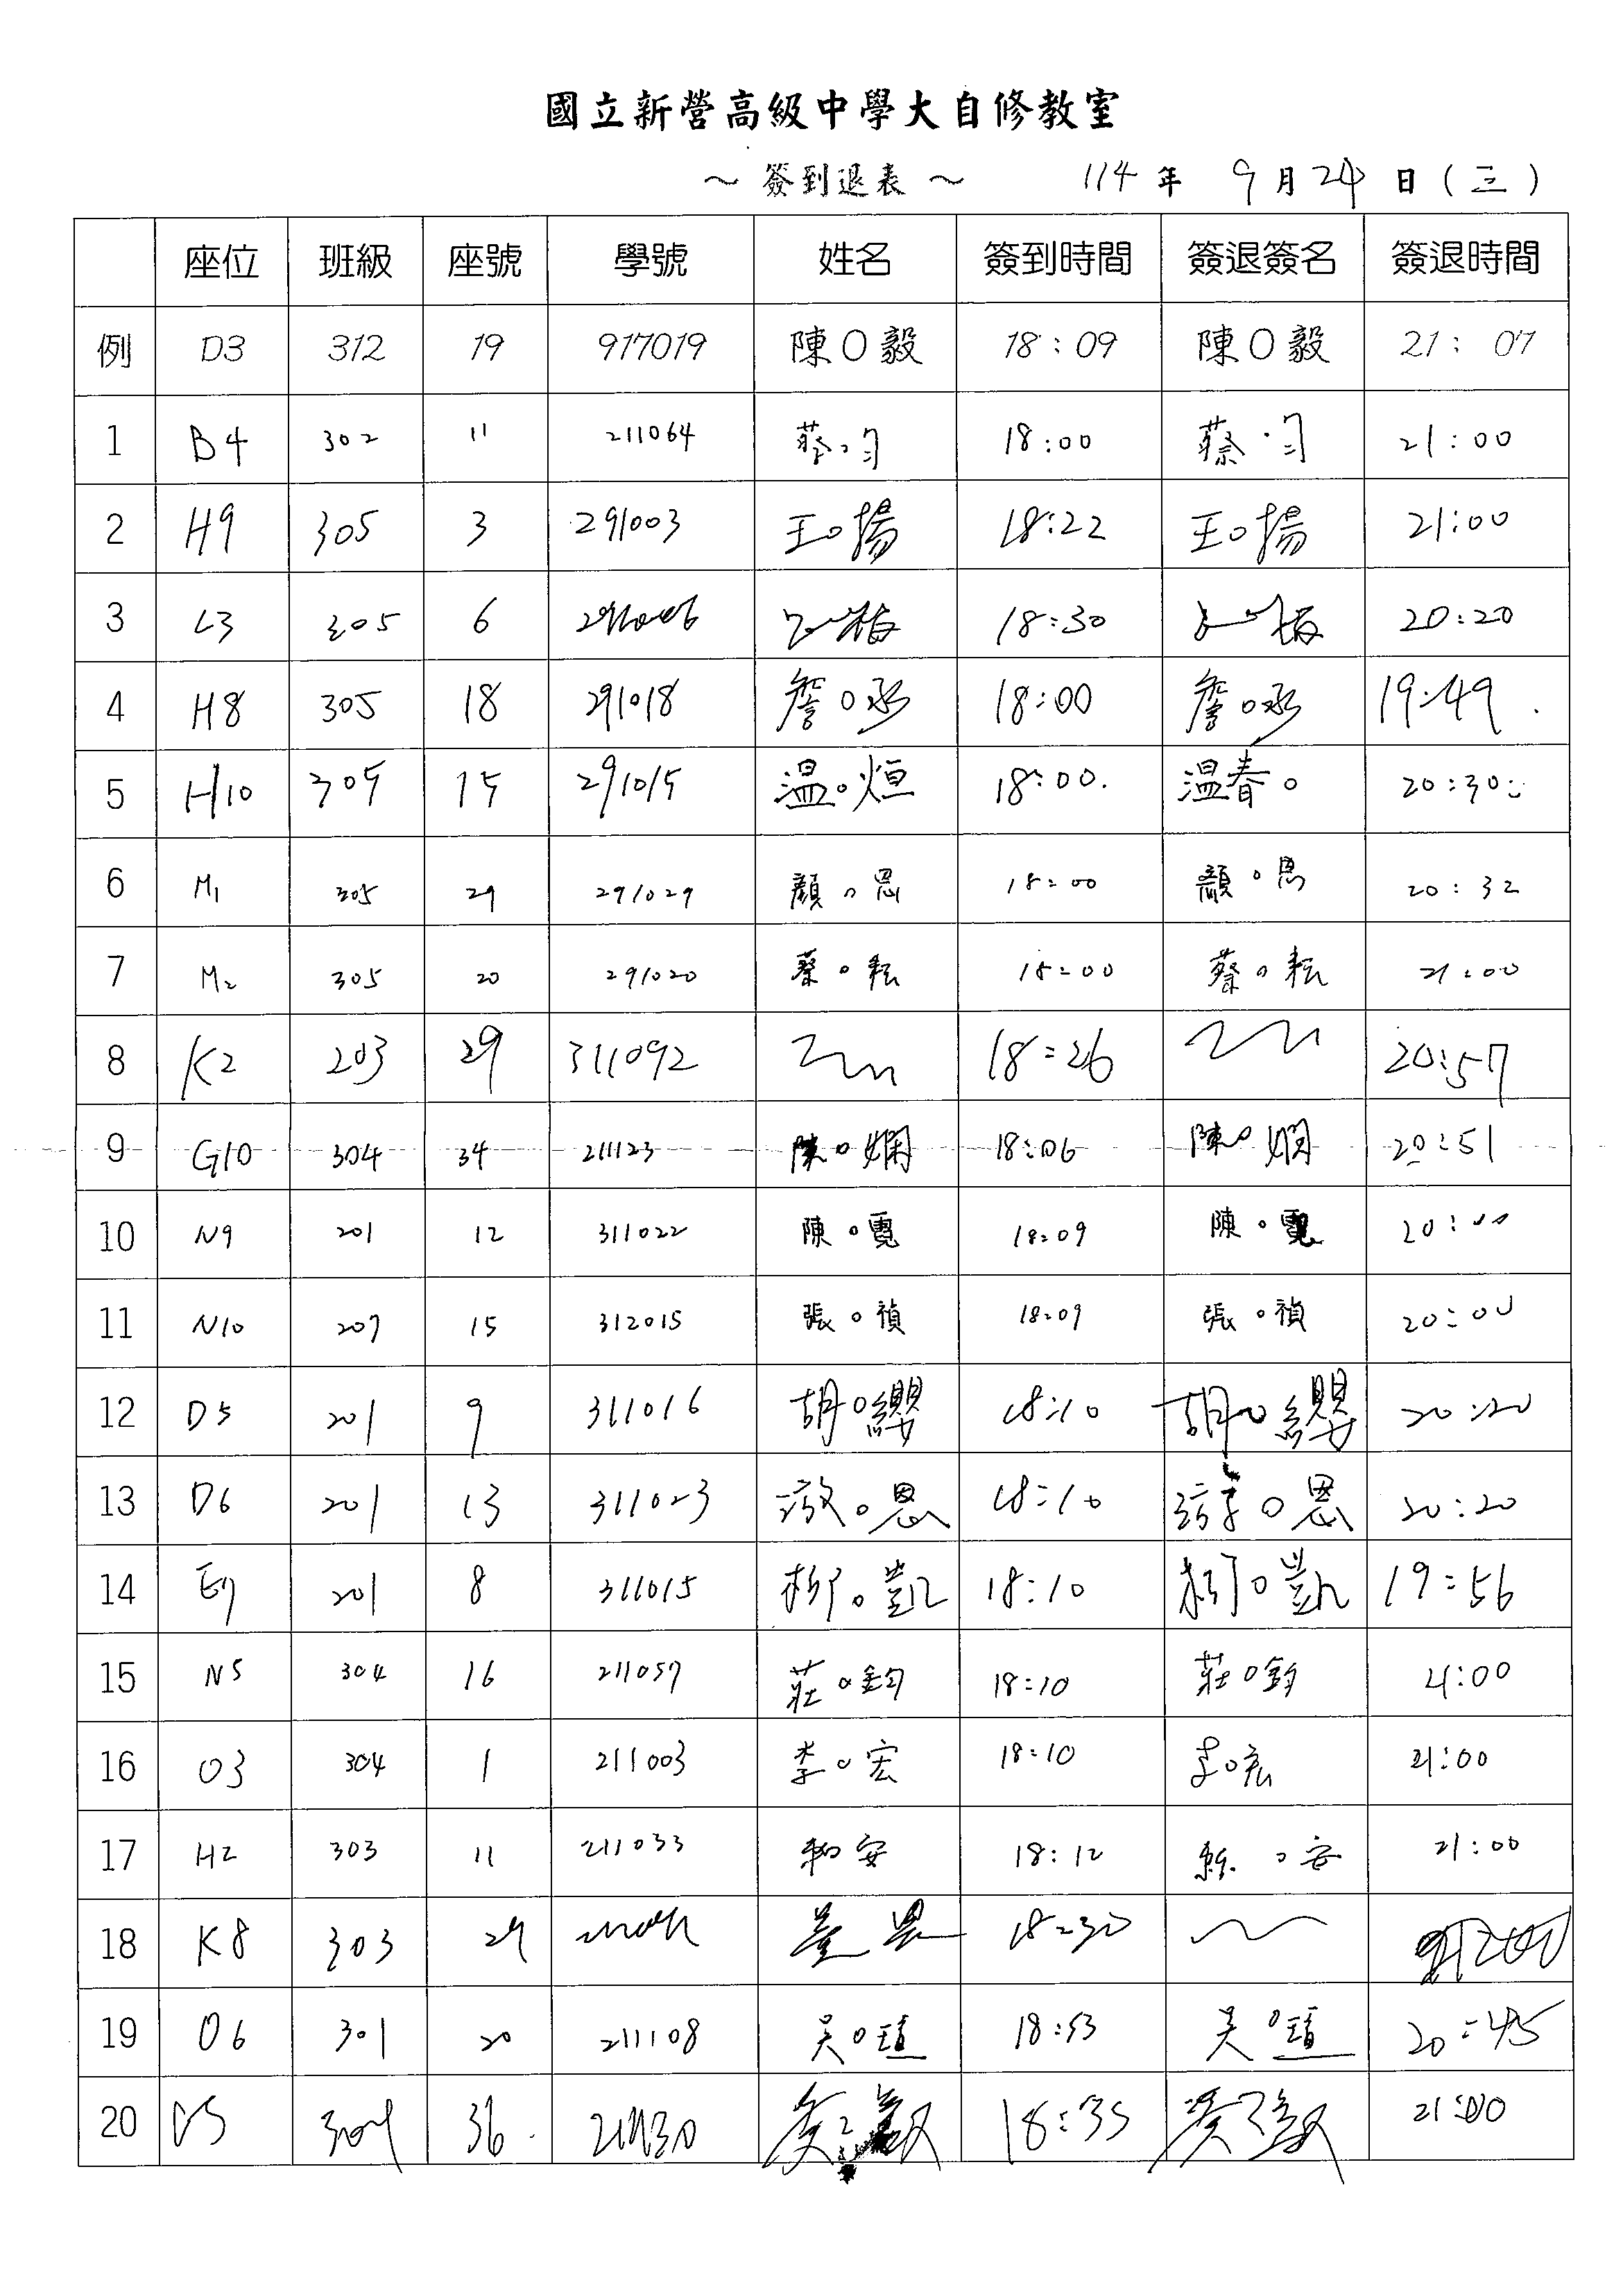 國立新營高級中學大自修教室
～ 簽到退表 ～ 114 年 9 月 24 日 ( 三 )
座位 班級 座號 學號 姓名 簽到時間 簽退簽名 簽退時間
例 D3 312 19 917019 陳O毅 18:09 陳O毅 21:07
1 B4 302 11 211064 蔡 18:00 蔡 21:00
2 H9 305 3 291003 王O揚 18:22 王O揚 21:00
3 L3 305 6 18:30 20:20
4 H8 305 18 291018 詹O丞 18:00 詹O丞 19:49
5 H10 305 15 291015 温O烜 18:00 温春O 20:30
6 M1 305 29 291029 顏O恩 18:00 顏O恩 20:32
7 M2 305 20 291020 蔡O耘 18:00 蔡O耘 21:00
8 K2 203 29 311092 18:26 20:57
9 G10 304 34 211123 陳O嫻 18:06 陳O嫻 20:51
10 N9 201 12 311022 陳O霓 18:09 陳O霓 20:00
11 N10 207 15 312015 張O禎 18:09 張O禎 20:00
12 D5 201 9 311016 胡O纓 18:10 胡O纓 20:20
13 D6 201 13 311023 O恩 18:10 O恩 20:20
14 E7 201 8 311015 柳O凱 18:10 柳O凱 19:56
15 N5 304 16 211057 莊O鈞 18:10 莊O鈞 21:00
16 O3 304 1 211003 李O宏 18:10 李O宏 21:00
17 H2 303 11 211033 安 18:12 O安 21:00
18 K8 303 29 18:30
19 O6 301 20 211108 吳O瑄 18:53 吳O瑄 20:45
20 304 36 18:35 21:00